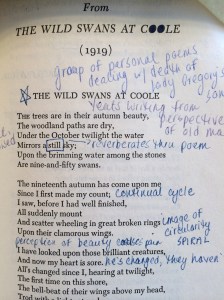 From
THE WILD SWANS AT COOLE
(1919)
group of personal poems
dealing w/ death of
Lady Gregory's
son
THE WILD SWANS AT COOLE
Yeats writing from
perspective
of old ma
THE trees are in their autumn beauty,
The woodland paths are dry,
Under the October twilight the water
Mirrors a still sky; reverberates thru poem
Upon the brimming water among the stones
Are nine-and-fifty swans.
The nineteenth autumn has come upon me
Since I first made my count; continual cycle
I saw, before I had well finished,
All suddenly mount
And scatter wheeling in great broken rings image of
circularity
Upon their clamorous wings.
SPIRAL
perception of beauty pain
I have looked upon those brilliant creatures,
And now my heart is sore. he's changed, they haven'
All's changed since I, hearing at twilight,
The first time on this shore,
The bell-beat of their wings above my head,
Trod with a